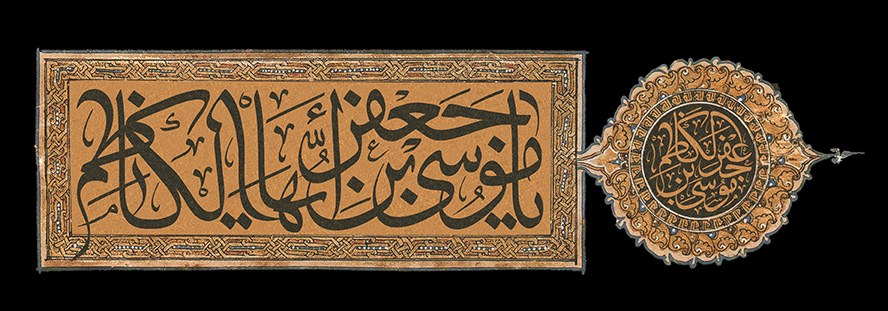 يا موسى بن جعفر أيها الكاظم
موسى بن جعفر الكاظم